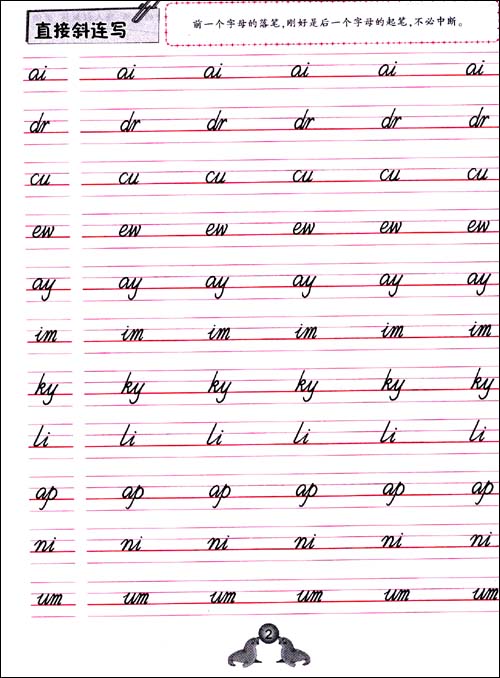 直接斜连写
前一个字母的落笔,刚好是后一个字母的起笔,不必中断。
ai ai ai ai ai ai
dr dr dr dr dr dr
cu cu cu cu cu cu
ew ew ew ew ew ew
ay ay ay ay ay ay
im im im im im im
ky ky ky ky ky ky
li li li li li li
ap ap ap ap ap ap
ni ni ni ni ni ni
um um um um um um
2